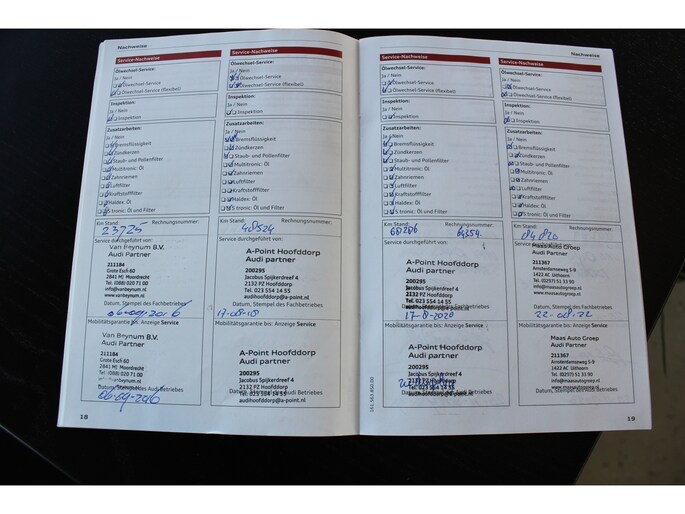 Nachweise
Service-Nachweise
Ölwechsel-Service:
Ja / Nein
Ölwechsel-Service
Ölwechsel-Service (flexibel)
Inspektion:
Ja / Nein
Inspektion
Zusatzarbeiten:
Ja / Nein
Bremsflüssigkeit
Zündkerzen
Staub- und Pollenfilter
Multitronic: Öl
Zahnriemen
Luftfilter
Kraftstofffilter
Haldex: Öl
S tronic: Öl und Filter
Km Stand: Rechnungsnummer:
23725
Service durchgeführt von:
Van Beynum B.V.
Audi Partner
211184
Grote Esch 60
2841 MJ Moordrecht
Tel. (088) 020 71 00
info@vanbeynum.nl
www.vanbeynum.nl
Datum, Stempel des Fachbetriebes
06-09-2016
Mobilitätsgarantie bis: Anzeige Service
Van Beynum B.V.
Audi Partner
211184
Grote Esch 60
2841 MJ Moordrecht
Tel. (088) 020 71 00
info@vanbeynum.nl
www.vanbeynum.nl
Datum, Stempel des Audi Betriebes
06-09-2016
18
Service-Nachweise
Ölwechsel-Service:
Ja / Nein
Ölwechsel-Service
Ölwechsel-Service (flexibel)
Inspektion:
Ja / Nein
Inspektion
Zusatzarbeiten:
Ja / Nein
Bremsflüssigkeit
Zündkerzen
Staub- und Pollenfilter
Multitronic: Öl
Zahnriemen
Luftfilter
Kraftstofffilter
Haldex: Öl
S tronic: Öl und Filter
Km Stand: Rechnungsnummer:
40524
Service durchgeführt von:
A-Point Hoofddorp
Audi partner
200295
Jacobus Spijkerdreef 4
2132 PZ Hoofddorp
Tel. 023 554 14 55
audihoofddorp@a-point.nl
Datum, Stempel des Fachbetriebes
17-08-18
Mobilitätsgarantie bis: Anzeige Service
A-Point Hoofddorp
Audi partner
200295
Jacobus Spijkerdreef 4
2132 PZ Hoofddorp
Tel. 023 554 14 55
Datum, Stempel des Audi Betriebes
audihoofddorp@a-point.nl
Service-Nachweise
Ölwechsel-Service:
Ja / Nein
Ölwechsel-Service
Ölwechsel-Service (flexibel)
Inspektion:
Ja / Nein
Inspektion
Zusatzarbeiten:
Ja / Nein
Bremsflüssigkeit
Zündkerzen
Staub- und Pollenfilter
Multitronic: Öl
Zahnriemen
Luftfilter
Kraftstofffilter
Haldex: Öl
S tronic: Öl und Filter
Km Stand: Rechnungsnummer:
68286
Service durchgeführt von:
A-Point Hoofddorp
Audi partner
200295
Jacobus Spijkerdreef 4
2132 PZ Hoofddorp
Tel. 023 554 14 55
audihoofddorp@a-point.nl
Datum, Stempel des Fachbetriebes
17-8-2020
Mobilitätsgarantie bis: Anzeige Service
A-Point Hoofddorp
Audi partner
200295
Jacobus Spijkerdreef 4
2132 PZ Hoofddorp
Datum, Stempel des Audi Betriebes
Tel. 023 554 14 55
audihoofddorp@a-point.nl
Nachweise
Service-Nachweise
Ölwechsel-Service:
Ja / Nein
Ölwechsel-Service
Ölwechsel-Service (flexibel)
Inspektion:
Ja / Nein
Inspektion
Zusatzarbeiten:
Ja / Nein
Bremsflüssigkeit
Zündkerzen
Staub- und Pollenfilter
Multitronic: Öl
Zahnriemen
Luftfilter
Kraftstofffilter
Haldex: Öl
S tronic: Öl und Filter
Km Stand: Rechnungsnummer:
84820
Service durchgeführt von:
Maas Auto Groep
Audi Partner
211367
Amsterdamseweg 5-9
1422 AC Uithoorn
Tel. (0297) 51 33 90
info@maasautogroep.nl
www.maasautogroep.nl
Datum, Stempel des Fachbetriebes
22-08-22
Mobilitätsgarantie bis: Anzeige Service
Maas Auto Groep
Audi Partner
211367
Amsterdamseweg 5-9
1422 AC Uithoorn
Tel. (0297) 51 33 90
info@maasautogroep.nl
www.maasautogroep.nl
Datum, Stempel des Audi Betriebes
19